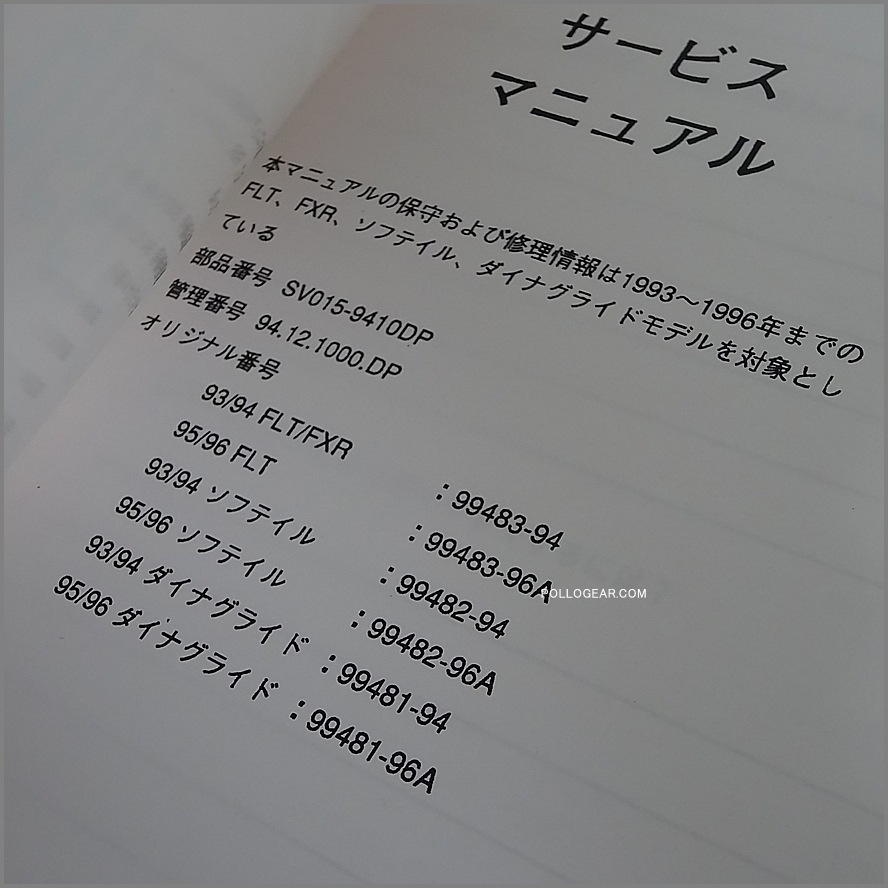 サービス
マニュアル
本マニュアルの保守および修理情報は1993〜1996年までの
FLT、FXR、ソフテイル、ダイナグライドモデルを対象とし
ている
部品番号 SV015-9410DP
管理番号 94.12.1000.DP
オリジナル番号
93/94 FLT/FXR : 99483-94
95/96 FLT : 99483-96A
93/94 ソフテイル : 99482-94
95/96 ソフテイル : 99482-96A
93/94 ダイナグライド : 99481-94
95/96 ダイナグライド : 99481-96A
POLLOGEAR.COM